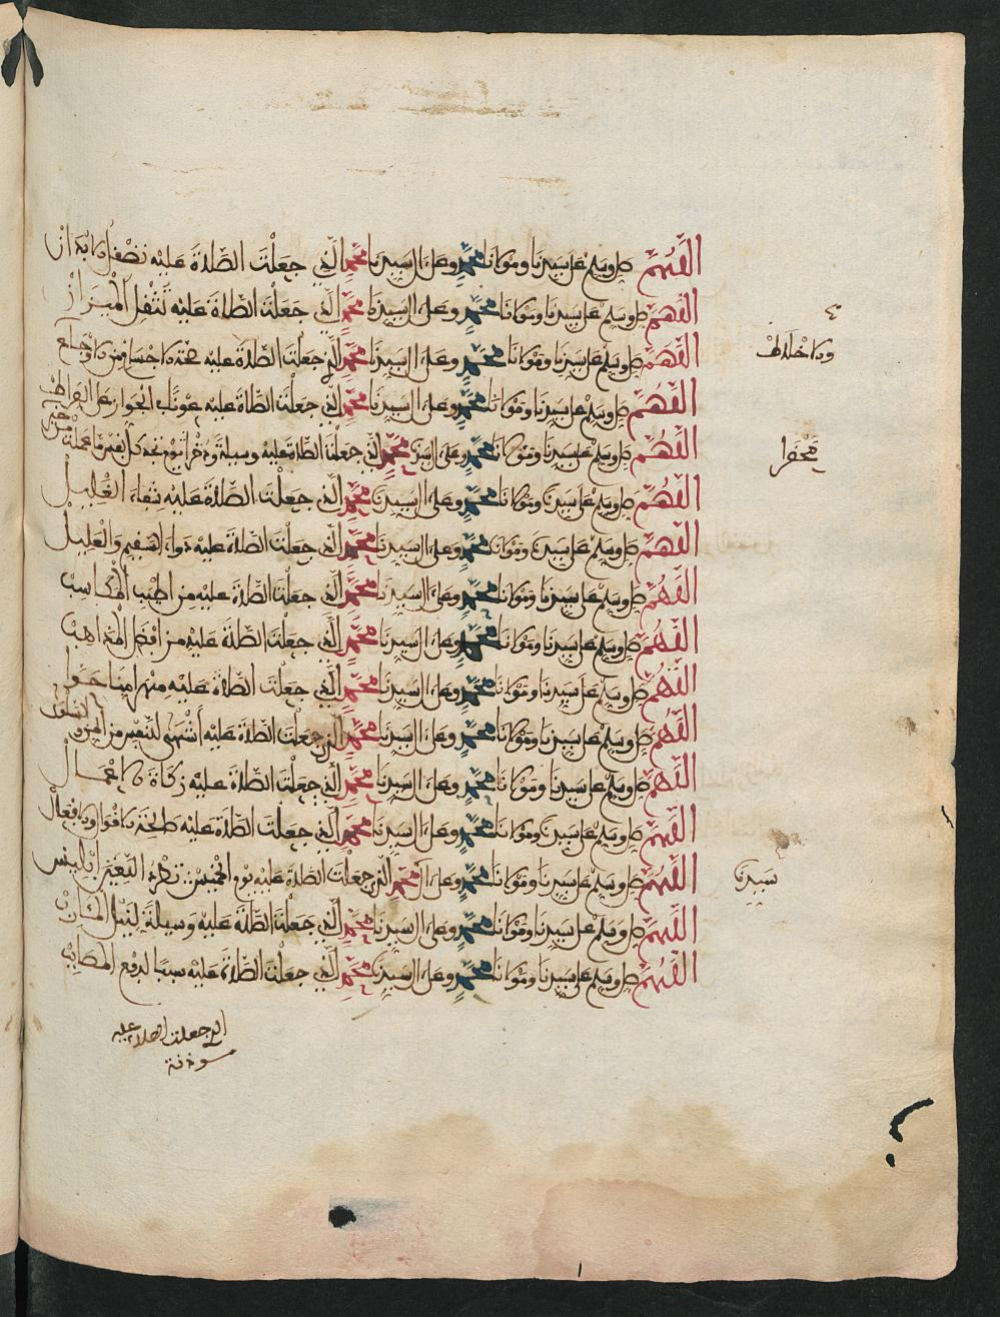 اللهم صل وسلم على سيدنا ومولانا محمد وعلى ال سيدنا محمد الذي جعلت الصلاة عليه
اللهم صل وسلم على سيدنا ومولانا محمد وعلى ال سيدنا محمد الذي جعلت الصلاة عليه تثقل الميزان
اللهم صل وسلم على سيدنا ومولانا محمد وعلى ال سيدنا محمد الذي جعلت الصلاة عليه صحة الاجسام من الاوجاع
والاخلاط
اللهم صل وسلم على سيدنا ومولانا محمد وعلى ال سيدنا محمد الذي جعلت الصلاة عليه عونا الجواز على الصراط
اللهم صل وسلم على سيدنا ومولانا محمد وعلى ال سيدنا محمد الذي جعلت الصلاة عليه وسيلة وذخرا يوم تجد كل نفس ما عملت من خير
محضرا
اللهم صل وسلم على سيدنا ومولانا محمد وعلى ال سيدنا محمد الذي جعلت الصلاة عليه شفاء الغليل
اللهم صل وسلم على سيدنا ومولانا محمد وعلى ال سيدنا محمد الذي جعلت الصلاة عليه دواء السقيم والعليل
اللهم صل وسلم على سيدنا ومولانا محمد وعلى ال سيدنا محمد الذي جعلت الصلاة عليه من اطيب المكاسب
اللهم صل وسلم على سيدنا ومولانا محمد وعلى ال سيدنا محمد الذي جعلت الصلاة عليه من افضل المذاهب
اللهم صل وسلم على سيدنا ومولانا محمد وعلى ال سيدنا محمد الذي جعلت الصلاة عليه
اللهم صل وسلم على سيدنا ومولانا محمد وعلى ال سيدنا محمد الذي جعلت الصلاة عليه أشهى للنفس من المن والسلوى
اللهم صل وسلم على سيدنا ومولانا محمد وعلى ال سيدنا محمد الذي جعلت الصلاة عليه زكاة الاعمال
اللهم صل وسلم على سيدنا ومولانا محمد وعلى ال سيدنا محمد الذي جعلت الصلاة عليه الاقوال والافعال
اللهم صل وسلم على سيدنا ومولانا محمد وعلى ال محمد الذي جعلت الصلاة عليه يوم الخميس اللعين ابليس
سيدنا
اللهم صل وسلم على سيدنا ومولانا محمد وعلى ال سيدنا محمد الذي جعلت الصلاة عليه وسيلة لنيل
اللهم صل وسلم على سيدنا ومولانا محمد وعلى ال سيدنا محمد الذي جعلت الصلاة عليه سببا لدفع المصايب
الذي جعلت الصلاة عليه